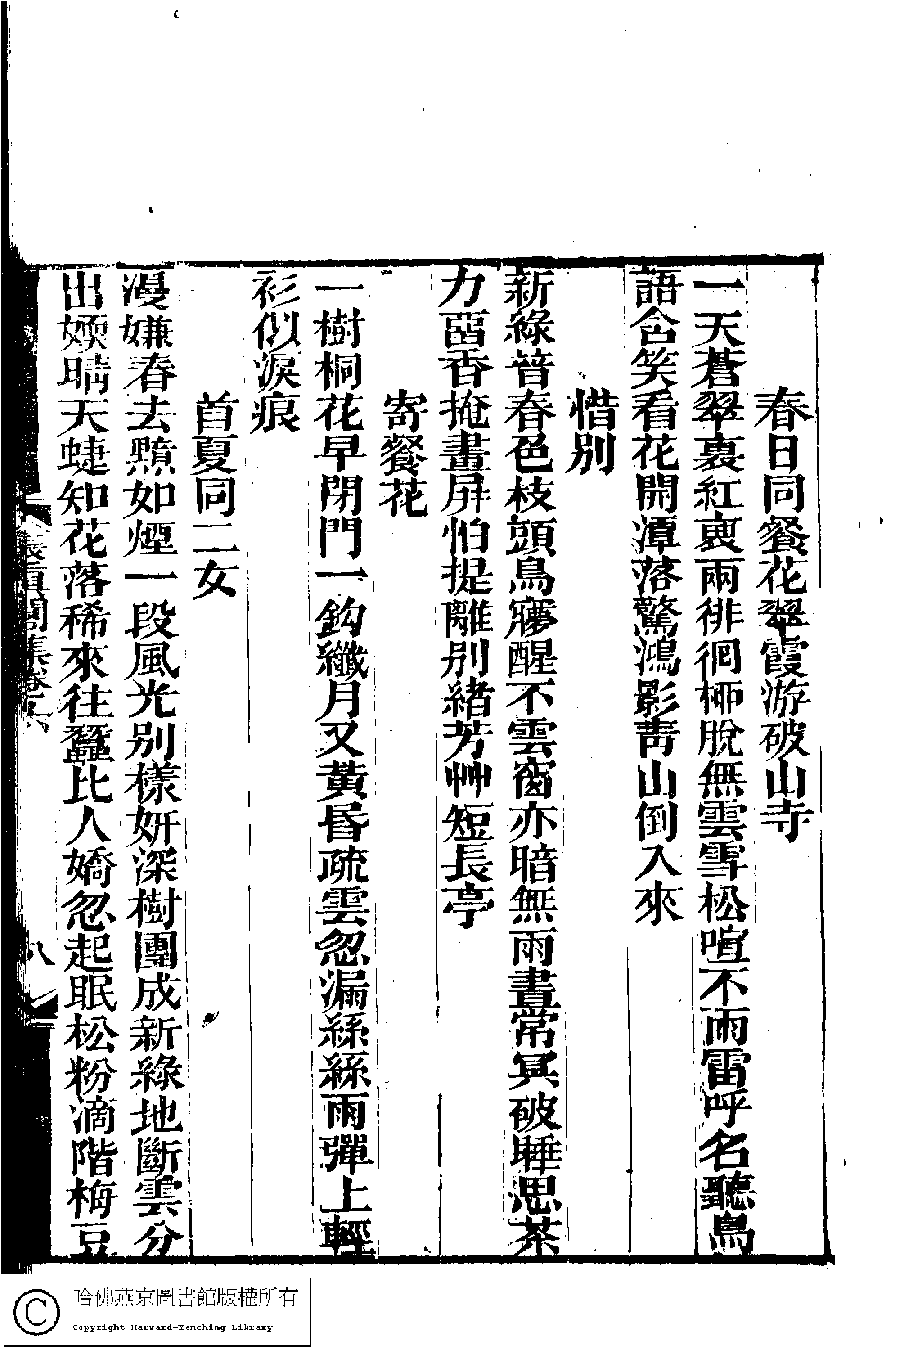 春日同餐花翠霞游破山寺
一天蒼翠裏紅衷兩徘徊桺脫無雲雪松喧不雨雷呼名聽鳥
語含笑看花開潭落驚鴻影靑山倒入來
惜別
新綠普春色枝頭鳥㝱醒不雲窗亦暗無雨晝常冥破睡思茶
力畱香掩畫屏怕提離別緒芳艸短長亭
寄餐花
一樹桐花早閉門一鈎纖月又黃昏疏雲忽漏絲絲雨彈上輕
衫佀淚痕
首夏同二女
漫嫌春去黯如煙一段風光別樣姸深樹團成新綠地斷雲分
出嫩晴天蜨知花落稀來往蠶比人嬌忽起眠松粉滴階梅豆
長眞閣集卷六
八
哈佛燕京圖書館版權所有
Copyright Harvard-Yenching Library